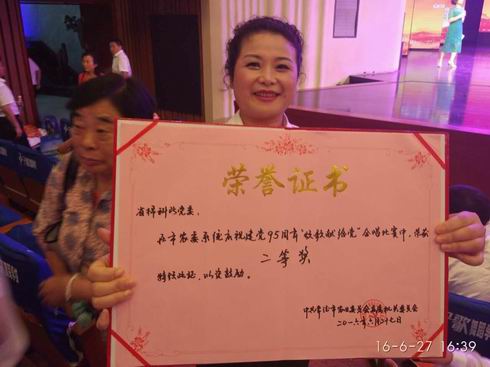 荣誉证书
省棉科所党委:
在市农委系统庆祝建党95周年"放歌献给党"合唱比赛中,荣获
二等奖
特发此证,以资鼓励。
中共常德市农业委员会直属机关委员会
二〇一六年六月二十七日
16-6-27 16:39